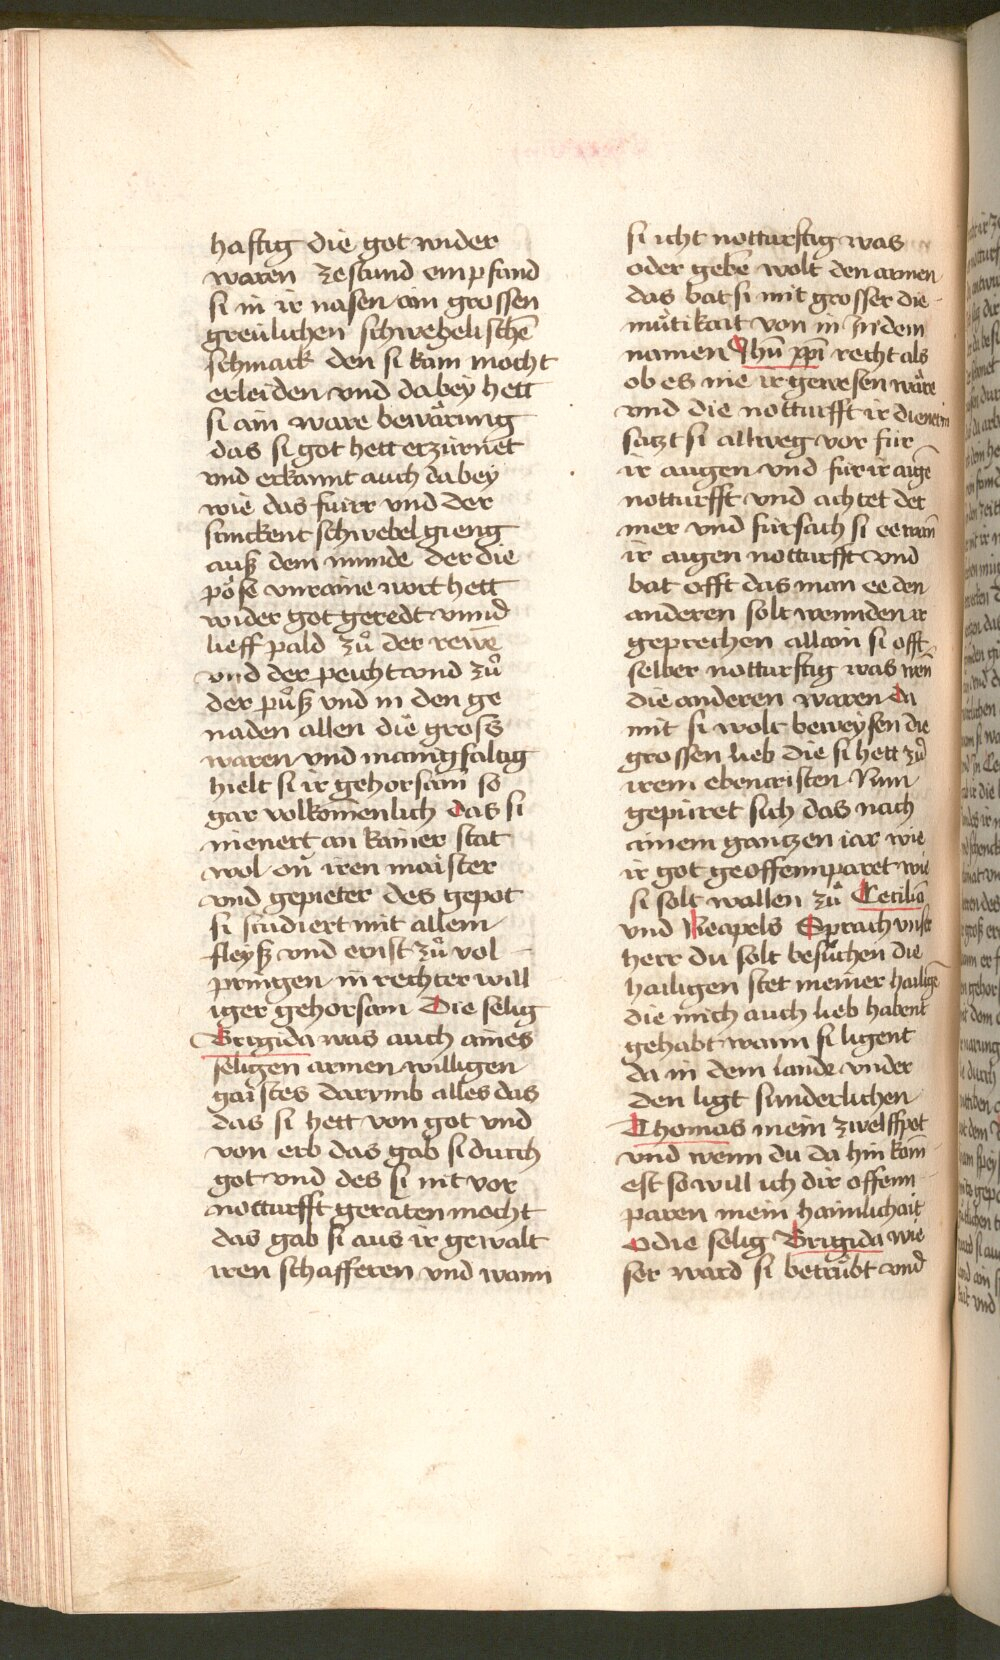 hafftig die got wider
waren zestund empfand
si in ir nasen ain grossen
greülichen schwebelischē
schmack den si kam mocht
erleiden vnd da bey hett
si ain ware bewärung
das si got hett erzürnet
vnd erkannt auch da bey
wie das fuirr vnd der
stinckent schwebel gieng
auß dem munde der die
pöse vnraine wort hett
wider got geredt vnnd
lieff pald zů der rewe
vnd der peicht vnd zů
der půß vnd in den ge
naden allen die gross
waren vnd manigfaltig
hielt si ir gehorsam so
gar volkomēlich das si
nienert an kainer stat
wol on iren maister
vnd gepieter des gepot
si studiert mit allem
fleyß vnd ernst zů vol
pringen in rechter will
iger gehorsam Die selig
Brigida was auch aines
seligen armen willigen
gaistes darvmb alles das
das si hett von got vnd
von erb das gab si durch
got vnd des si nit vor
notturfft geraten mocht
das gab si aus ir gewalt
iren schafferen vnd wann
si icht notturftig was
oder gebē wolt den armen
das bat si mit grosser die
mütikait von in In dem
namen Jhū xp̄i recht als
ob es nie ir gewesen wäre
vnd die notturfft ir dienerin
satzt si allweg vor für
ir augen vnd für ir aigē
notturfft vnd achtet der
mer vnd fürsach si ee wan̄
ir augen notturfft vnd
bat offt das man ee den
anderen solt wennden ir
geprechen allain si offt
selber notturftig was wen̄
die anderen waren da
mit si wolt beweysen die
grossen lieb die si hett zů
irem ebencristen Nun
gepürret sich das nach
ainem gantzen iar wie
ir got geoffennparet wie
si solt wallen zů Cecilia
vnd Neapels Sprach vnser
herr du solt besůchen die
hailigen stet meiner hailigē
die mich auch lieb habent
gehabt wann si ligent
da in dem lande vnder
den ligt sunderlichen
Thomas mein zwelffpot
vnd wenn du da hin kom
est so will ich dir offenn
paren mein haimlichait
O die selig Brigida wie
ser ward si betrübt vnd